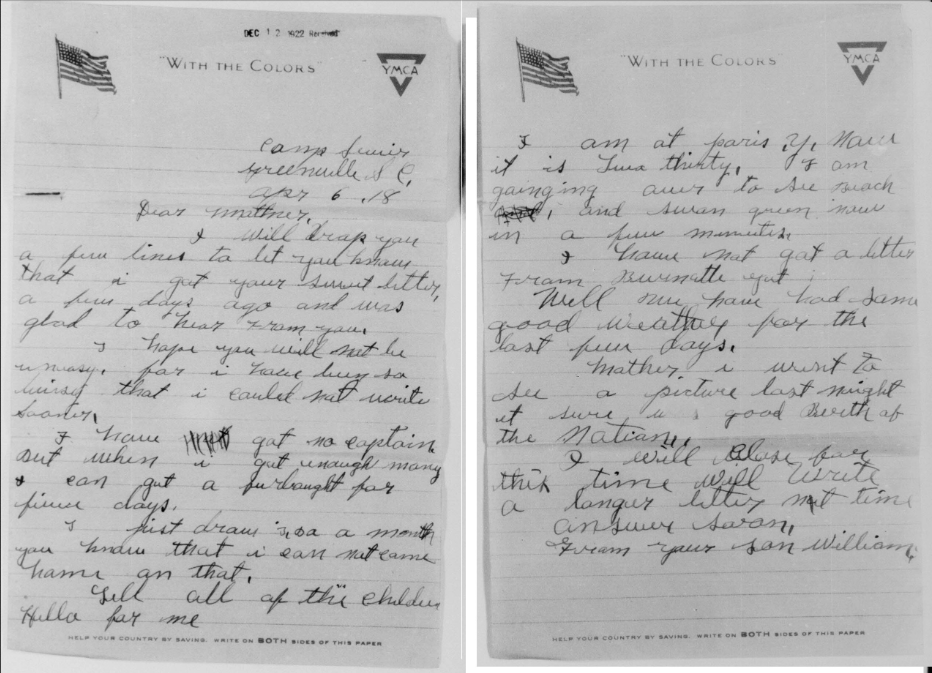 DEC 12 1922 Received
"WITH THE COLORS"
YMCA
Camp Sevier
Greenville S C,
apr 6 .18
Dear mother,
I will Drap you
a few lines to let you know
that i got your sweet letter,
a few days ago and was
glad to hear from you.
I hope you will not be
uneasy. for i have been so
that i could not write
sooner,
I have got no captain
But when i get enough mony
I can get a for
five days.
I just draw a month
you know that i can not come
home on that,
Tell all of the children
Hello for me
HELP YOUR COUNTRY BY SAVING. WRITE ON BOTH SIDES OF THIS PAPER
"WITH THE COLORS"
YMCA
I am at paris Y, Naw
it is Two thirty, I am
over to see
, and swan green now
in a few
I have not got a letter
From yet
Well we have had some
good for the
last few days.
Mother i went to
see a picture last night
it sure is good Berth of
the Nation,
I will Close for
this time will Write
a longer letter time
answer soon,
From your son William,
HELP YOUR COUNTRY BY SAVING. WRITE ON BOTH SIDES OF THIS PAPER